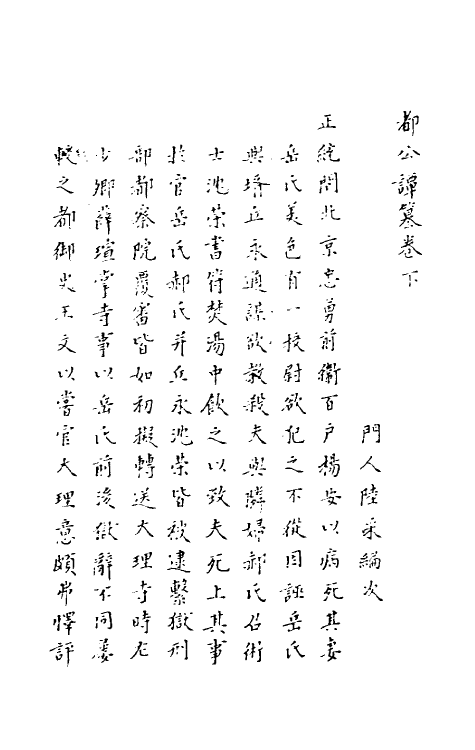 都公譚纂卷下
門人陸采編次
正統間北京忠勇前衛百戶楊安以病死其妻
岳氏美色有一校尉欲犯之不從因誣岳氏
與壻丘永通謀欲教殺夫與隣婦郝氏召術
士沈榮書符焚湯中飲之以致夫死上其事
於官岳氏郝氏并丘永沈榮皆被逮繫獄刑
部都察院覆審皆如初擬轉送大理寺時左
少卿薛瑄掌寺事以岳氏前後獄辭不同屡
駁之都御史王文以嘗官大理意頗弗懌評